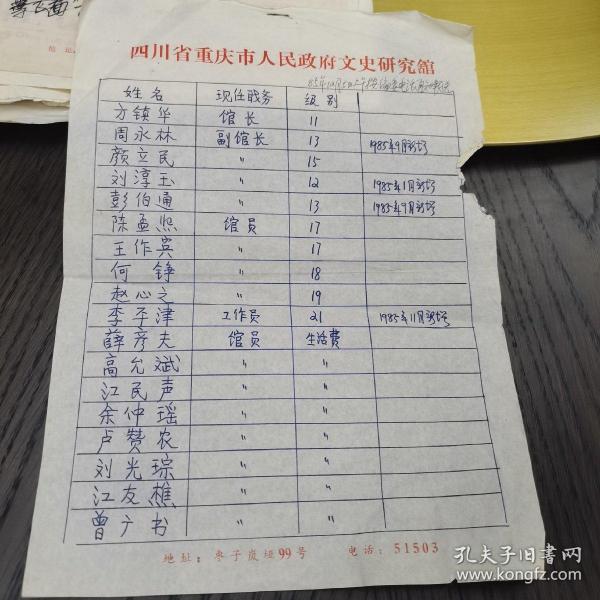 四川省重庆市人民政府文史研究馆
姓名 现任职务 级别
方镇华 馆长 11
周永林 副馆长 13 1985年9月新增
颜立民 〃 15
刘淳玉 〃 12 1985年1月新增
彭伯通 〃 13 1985年9月新增
陈孟熙 馆员 17
王作宾 〃 17
何铮 〃 18
赵心之 〃 19
李平津 工作员 21 1985年11月新增
薛彦夫 馆员 生活费
高允斌 〃 〃
江民声 〃 〃
余仲瑶 〃 〃
卢赞农 〃 〃
刘光琮 〃 〃
江友樵 〃 〃
曾广书 〃 〃
地址：枣子岚垭99号 电话：51503
孔夫子旧书网
www.kongfz.com